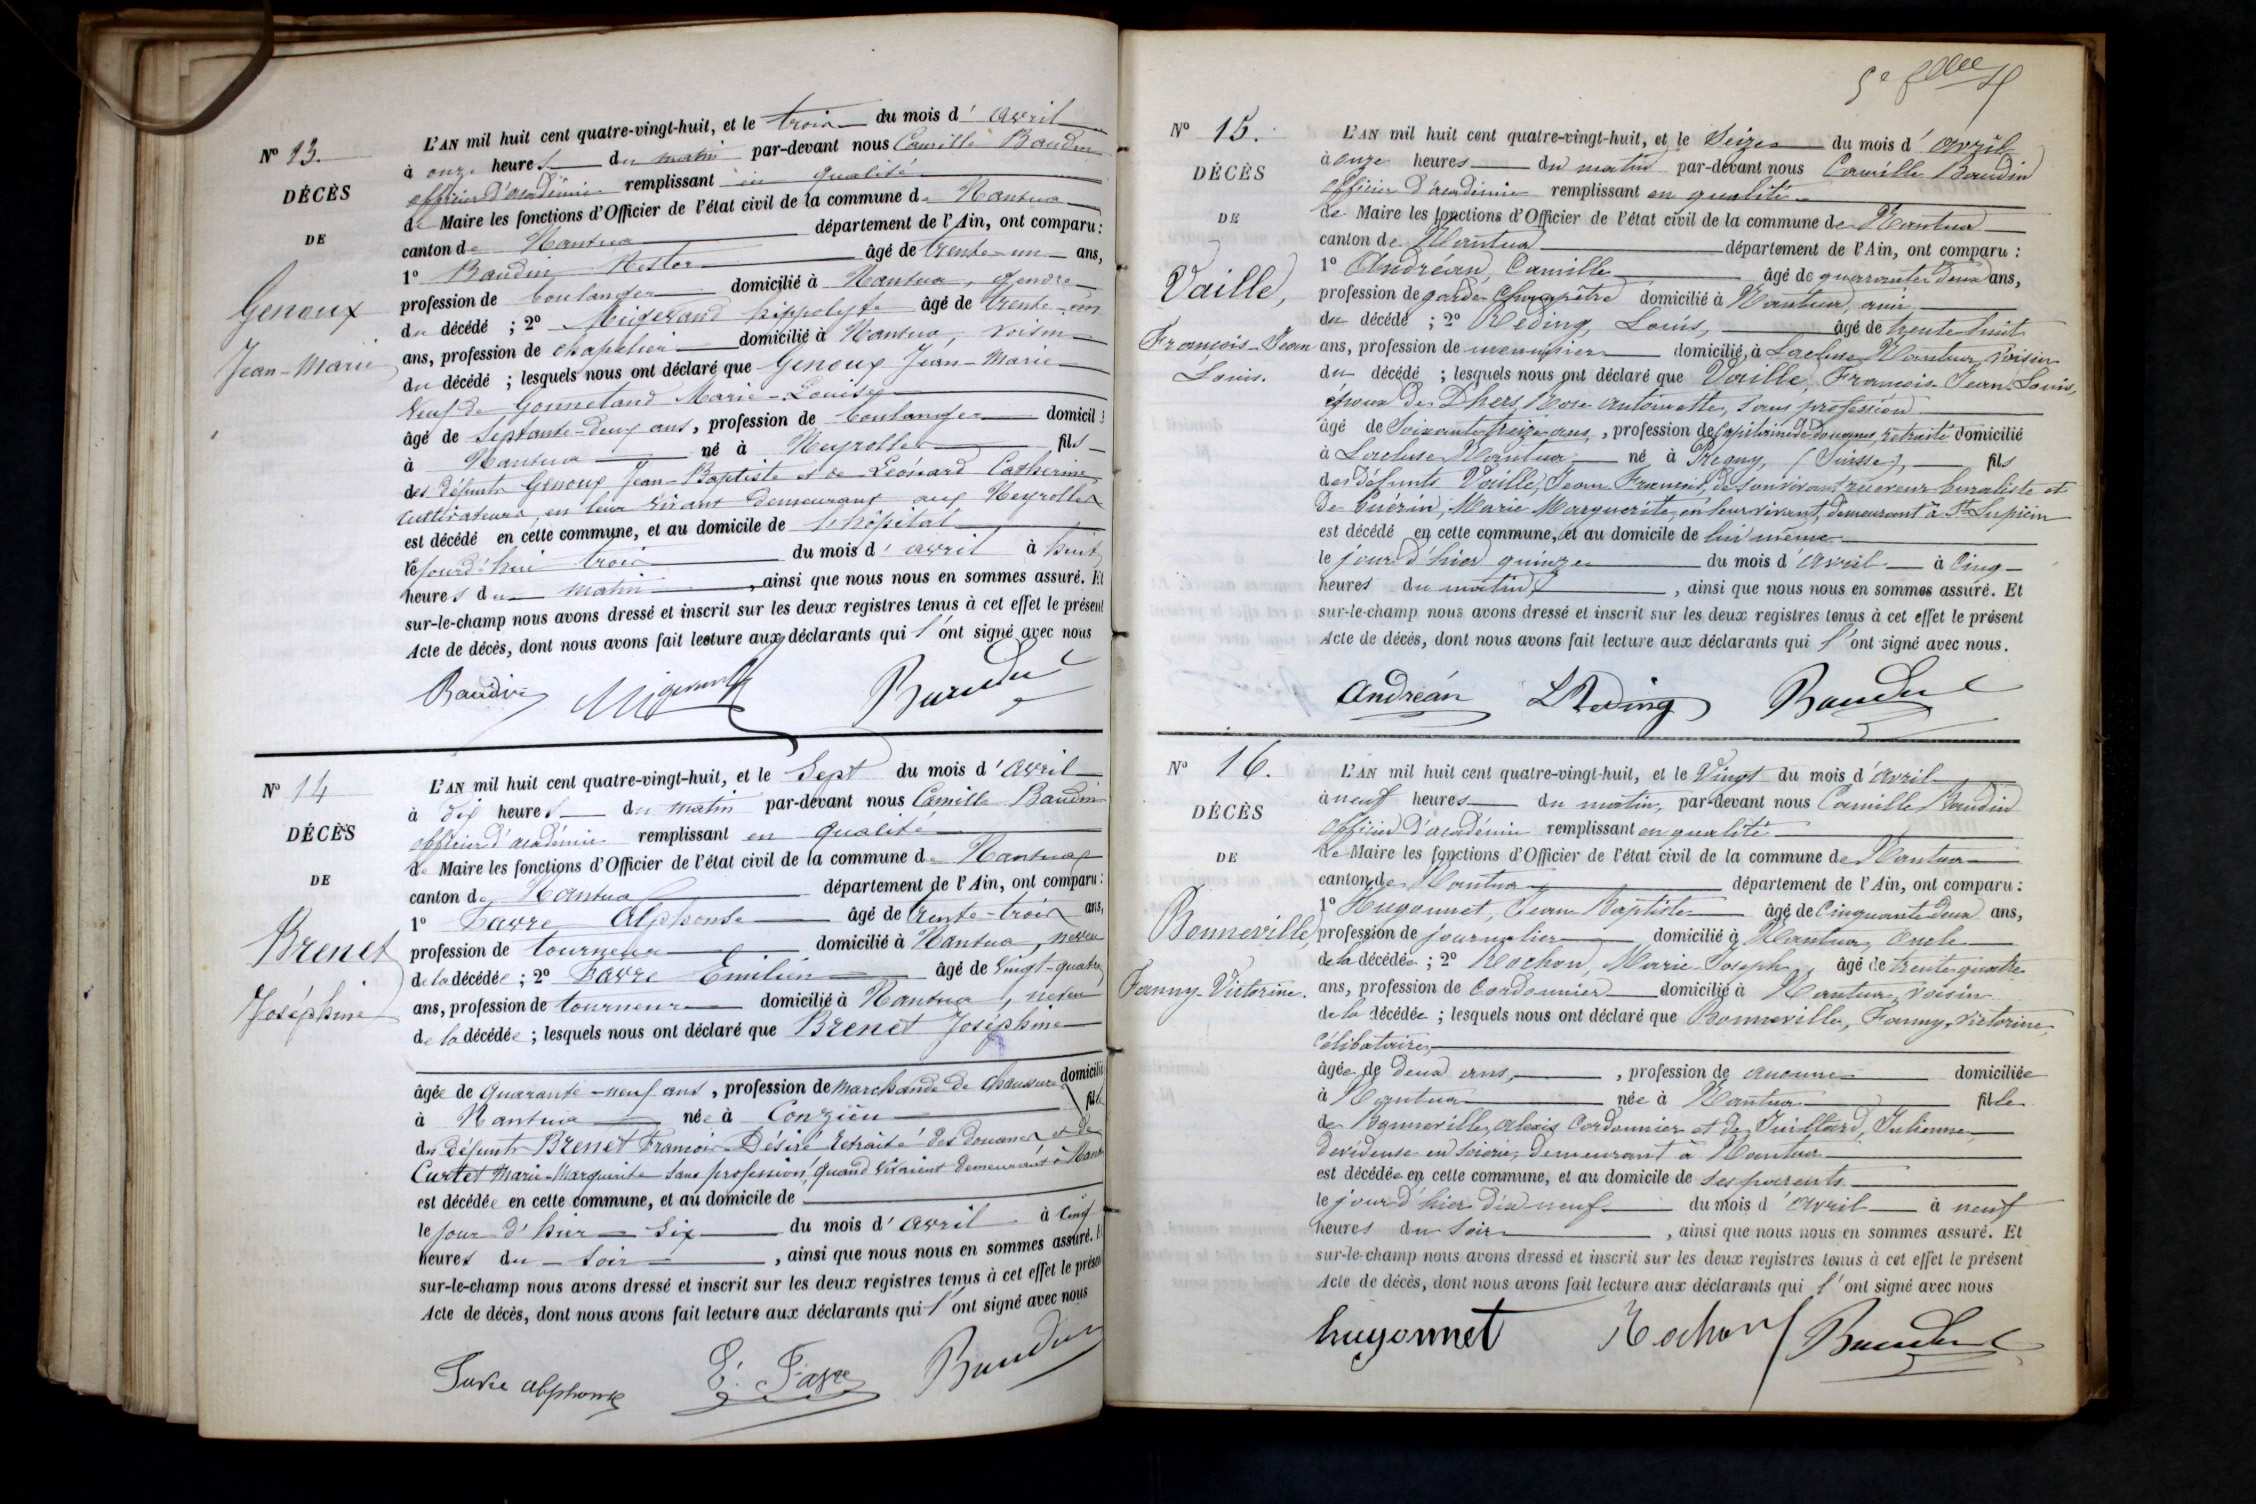 N° 13.
DÉCÈS
DE
Genoux
Jean-Marie
L'AN mil huit cent quatre-vingt-huit, et le trois du mois d'avril
à onze heures du matin par-devant nous Camille Baudin
officier d'académie remplissant en qualité
de Maire les fonctions d'Officier de l'état civil de la commune de Nantua
canton de Nantua département de l'Ain, ont comparu :
1° Baudin Nestor âgé de trente-un ans,
profession de boulanger domicilié à Nantua, gendre
du décédé ; 2° Migerand hippolyte âgé de trente-un
ans, profession de chapelier domicilié à Nantua, voisin
du décédé ; lesquels nous ont déclaré que Genoux Jean-Marie
Veuf de Gonnetand Marie-Louise
âgé de septante-deux ans, profession de boulanger domicil
à Nantua né à Neyrolles fils
des défunts Genoux Jean-Baptiste et de Leonard Catherine
cultivateurs, en leur vivant demeurant aux Neyrolles
est décédé en cette commune, et au domicile de l'hôpital
le jourd'hui trois du mois d'avril à huit
heures du matin, ainsi que nous nous en sommes assuré. Et
sur-le-champ nous avons dressé et inscrit sur les deux registres tenus à cet effet le présent
Acte de décès, dont nous avons fait lecture aux déclarants qui l'ont signé avec nous
Baudin Migerand Baudin
N° 14
DÉCÈS
DE
Brenet
Joséphine
L'AN mil huit cent quatre-vingt-huit, et le Sept du mois d'avril
à dix heures du matin par-devant nous Camille Baudin
officier d'académie remplissant en qualité
de Maire les fonctions d'Officier de l'état civil de la commune de Nantua
canton de Nantua département de l'Ain, ont comparu :
1° Favre Alphonse âgé de trente-trois ans,
profession de tourneur domicilié à Nantua, neveu
de la décédée ; 2° Favre Emilien âgé de vingt-quatre
ans, profession de tourneur domicilié à Nantua, neveu
de la décédée ; lesquels nous ont déclaré que Brenet Joséphine
âgée de quarante-neuf ans, profession de marchande de chaussures domicilié
à Nantua née à Conzieu fille
des défunts Brenet François Désiré retraité des douanes et de
Curtet Marie-Marguerite sans profession, quand vivaient demeurant à Nant
est décédée en cette commune, et au domicile de
le jour d'hier six du mois d'avril à cinq
heures du soir, ainsi que nous nous en sommes assuré. E
sur-le-champ nous avons dressé et inscrit sur les deux registres tenus à cet effet le présen
Acte de décès, dont nous avons fait lecture aux déclarants qui l'ont signé avec nous
Favre alphonse E. Favre Baudin
5e
N° 15.
DÉCÈS
DE
Vaille,
François-Jean
Louis.
L'AN mil huit cent quatre-vingt-huit, et le Seize du mois d'avril
à onze heures du matin par-devant nous Camille Baudin
officier d'académie remplissant en qualité
de Maire les fonctions d'Officier de l'état civil de la commune de Nantua
canton de Nantua département de l'Ain, ont comparu :
1° Andréan, Camille âgé de quarante deux ans,
profession de garde champêtre domicilié à Nantua, ami
du décédé ; 2° Réding, Louis, âgé de trente huit
ans, profession de menuisier domicilié, à Lacluse Nantua, voisin
du décédé ; lesquels nous ont déclaré que Vaille, François-Jean-Louis,
époux de Dhers, Rose antoinette, sans profession
âgé de Soixante treize ans, profession de Capitaine de douanes retraité domicilié
à Lacluse Nantua né à Pregny, (Suisse), fils
des défunts Vaille, Jean François, de son vivant receveur buraliste et
De Guérin, Marie Marguerite, en leur vivant, demeurant à St Lupicin
est décédé en cette commune, et au domicile de lui même
le jour d'hier quinze du mois d'avril à Cinq
heures du matin, ainsi que nous nous en sommes assuré. Et
sur-le-champ nous avons dressé et inscrit sur les deux registres tenus à cet effet le présent
Acte de décès, dont nous avons fait lecture aux déclarants qui l'ont signé avec nous.
Andréan L Reding Baudin
N° 16.
DÉCÈS
DE
Bonneville,
Fanny-Victorine.
L'AN mil huit cent quatre-vingt-huit, et le Vingt du mois d'avril
à neuf heures du matin, par-devant nous Camille Baudin
Officier d'académie remplissant en qualité
de Maire les fonctions d'Officier de l'état civil de la commune de Nantua
canton de Nantua département de l'Ain, ont comparu :
1° Hugonnet, Jean Baptiste âgé de Cinquante deux ans,
profession de journalier domicilié à Nantua, oncle
de la décédée ; 2° Rochon, Marie Joseph, âgé de trente quatre
ans, profession de Cordonnier domicilié à Nantua, voisin
de la décédée ; lesquels nous ont déclaré que Bonneville, Fanny, Victorine
Célibataire,
âgée de deux ans, profession de aucune domiciliée
à Nantua née à Nantua fille
de Bonneville, alexis Cordonnier et de Juillard, Julienne,
devideuse en soierie, demeurant à Nantua
est décédée en cette commune, et au domicile de ses parents
le jour d'hier dix neuf du mois d'avril à neuf
heures du Soir, ainsi que nous nous en sommes assuré. Et
sur-le-champ nous avons dressé et inscrit sur les deux registres tenus à cet effet le présent
Acte de décès, dont nous avons fait lecture aux déclarants qui l'ont signé avec nous
hugonnet Rochon Baudin